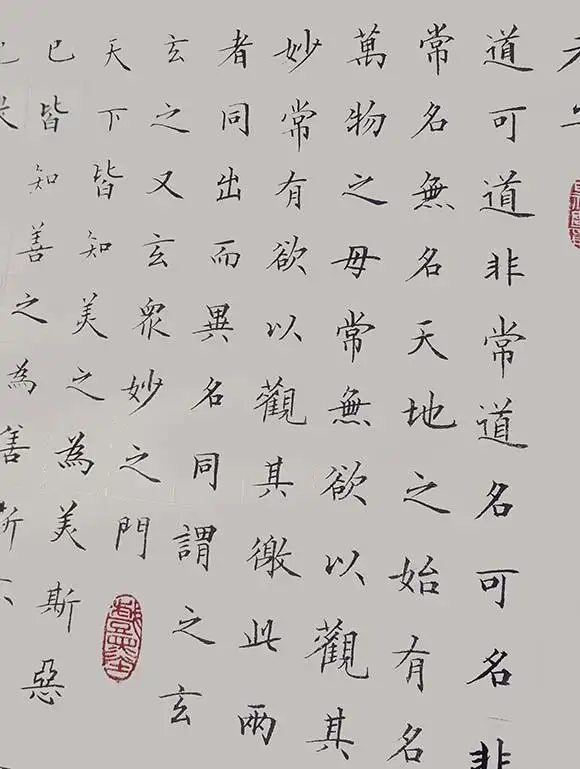 道可道非常道名可名非
常名無名天地之始有名
萬物之母常無欲以觀其
妙常有欲以觀其徼此兩
者同出而異名同謂之玄
玄之又玄眾妙之門
天下皆知美之為美斯惡
已皆知善之為善斯